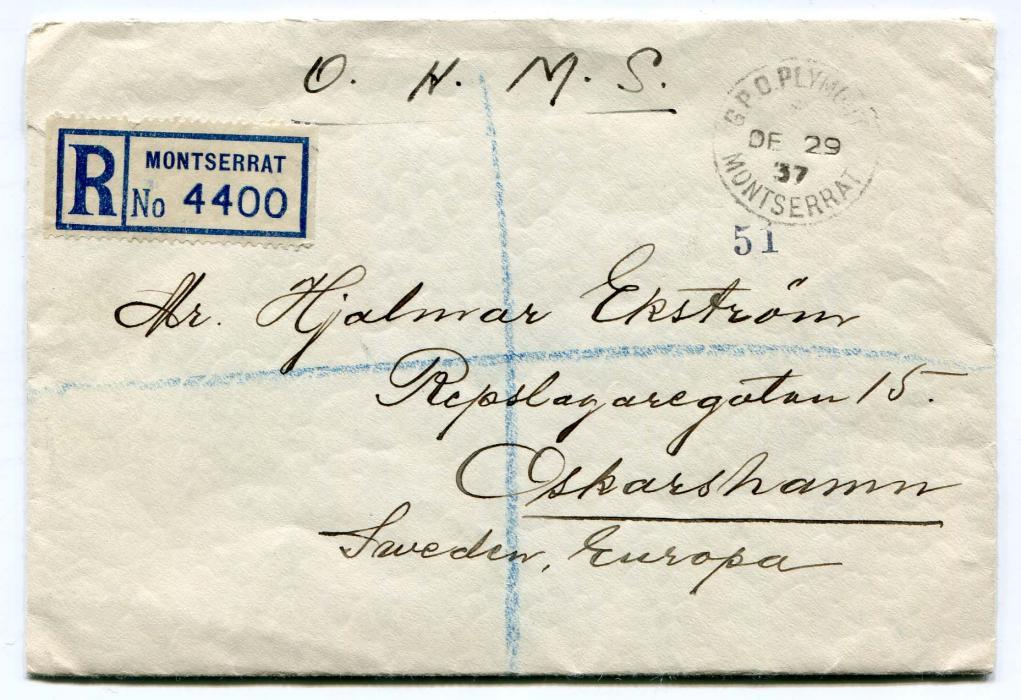 O. H. M. S.
G.P.O. PLYMOUTH
DE 29
37
MONTSERRAT
51
R MONTSERRAT
No 4400
Mr. Hjalmar Ekström
Repslagaregatan 15.
Oskarshamn
Sweden, Europa